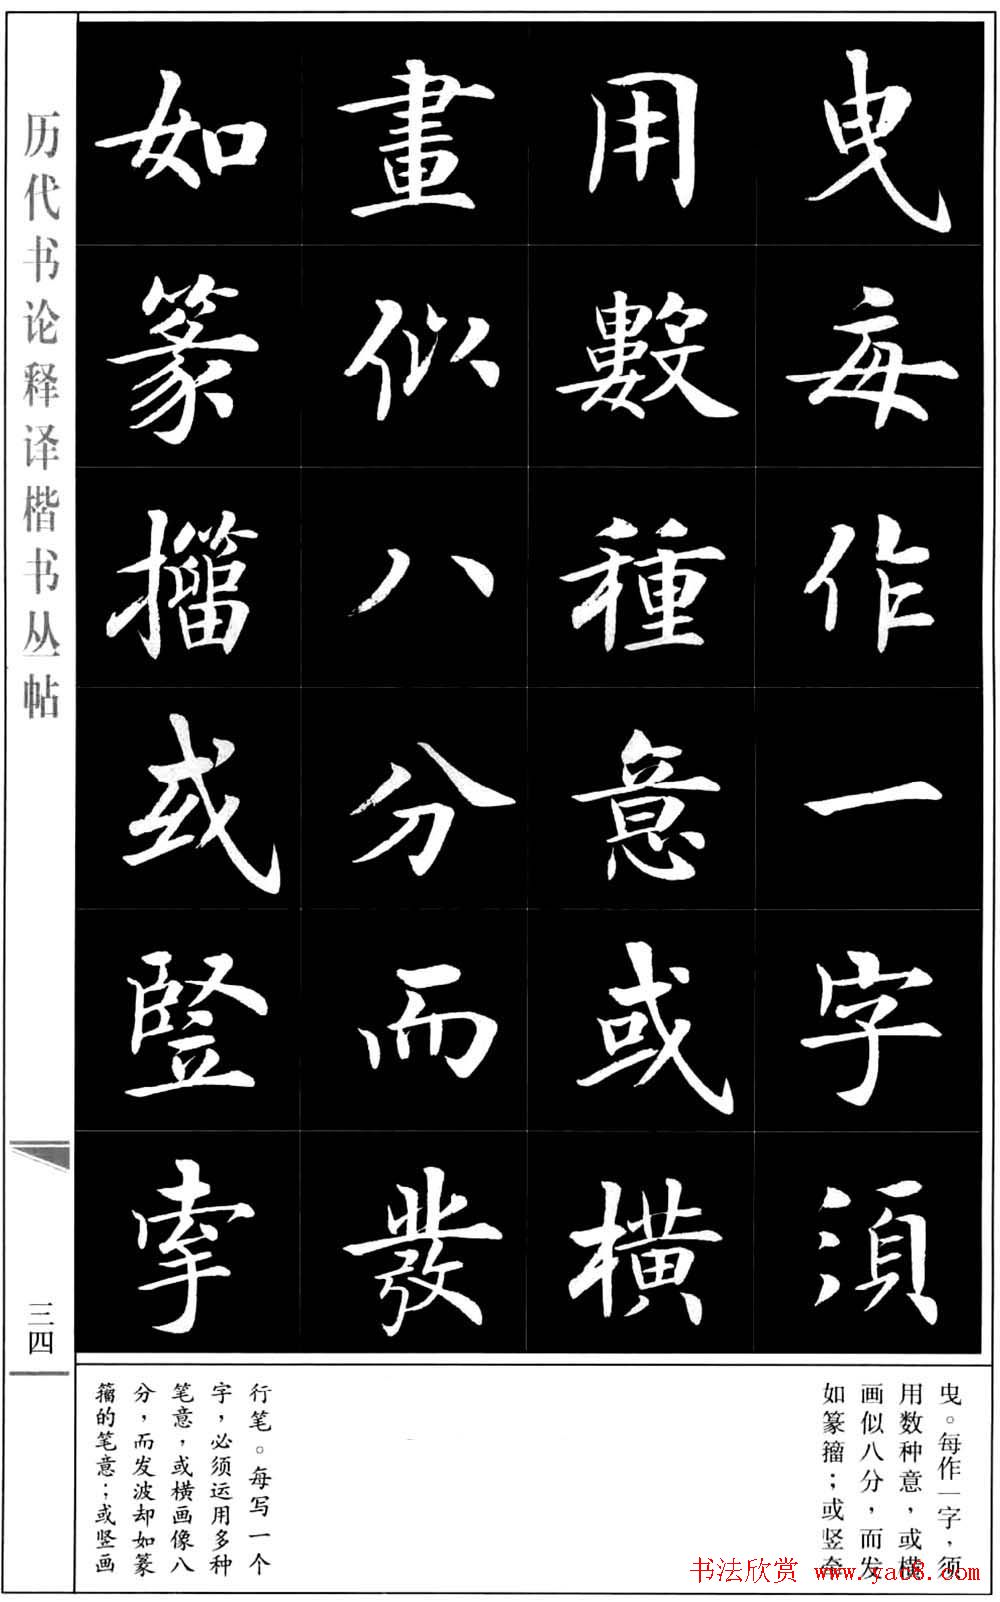 曳每作一字須
用數種意或橫
畫似八分而發
如篆籀或竪牵
曳。每作一字,须
用数种意,或横
画似八分,而发
如篆籀;或竖牵
行笔。每写一个
字,必须运用多种
笔意,或横画像八
分,而发波却如篆
籀的笔意;或竖画
历代书论释译楷书丛帖
三四
书法欣赏 www.yac8.com